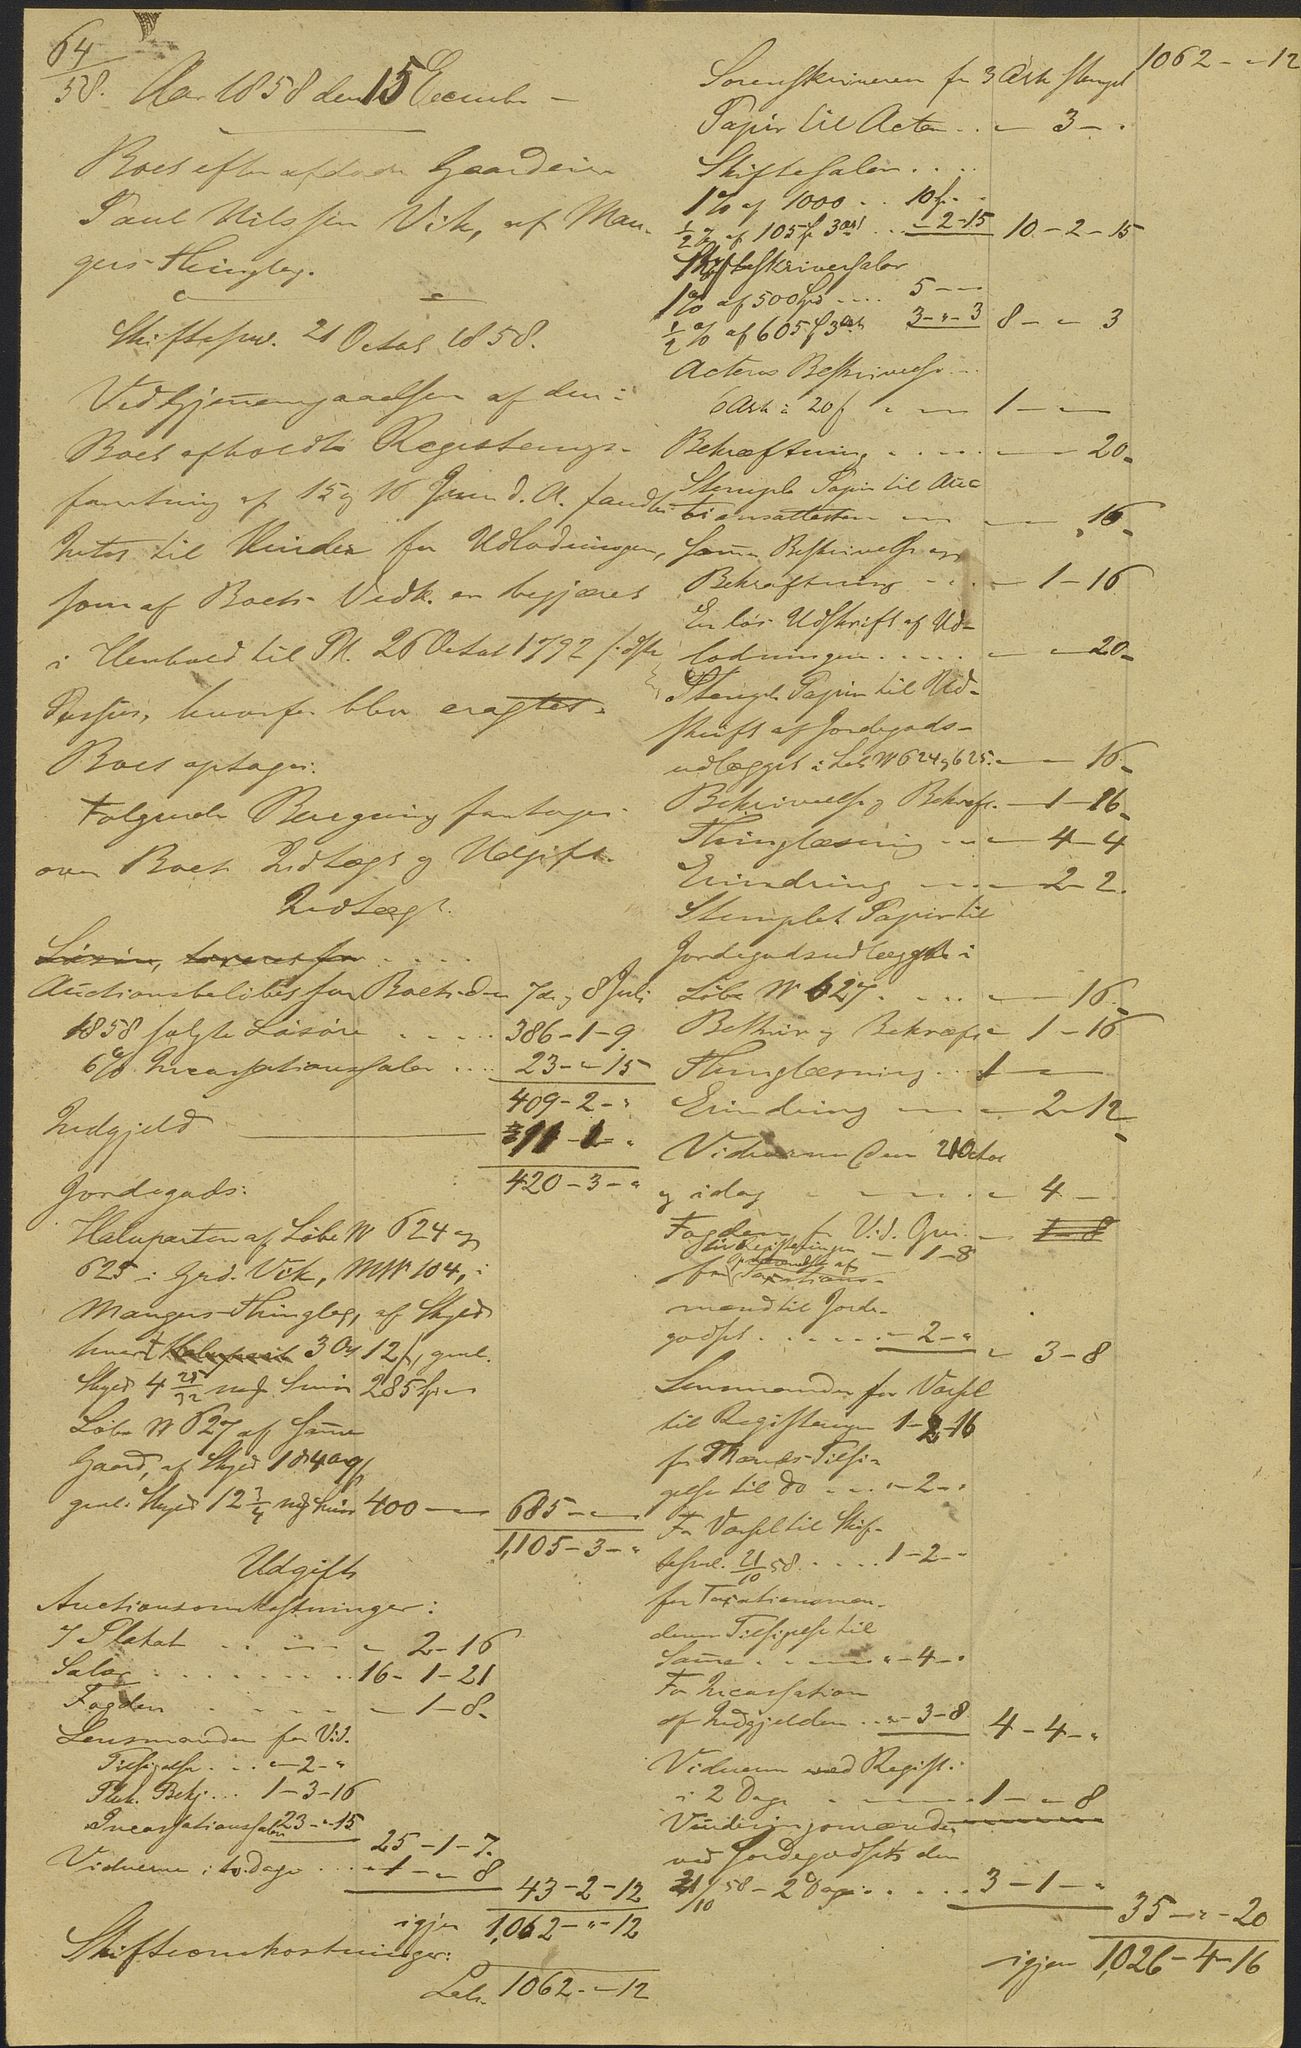 64
58. Aar 1858 den 15 December
Boet efter afdøde Gaardeier
Paul Nilssen Vik, af Man-
gers Thinglag.
Skiftesml. 21 Octob 1858.
Ved Gjennemgaaelsen af den i
Boet afholdte Registerings-
forretning af 15 og 16 Juni d. A. fandtes
Intet til Hinder for Udlodningen,
som af Boets Vedk. er begjæret
i Henhold til Pl. 26 Octob 1792
Passus, hvorfor blev eragtet:
Boet optages.
Følgende Beregning foretages
over Boets Indtægt og Udgift.
Indtægt.
Løsøre, taxeret for ....
Auctionsbeløbet for Boets den 7de og 8 Juli
1858 solgte Løsøre ..... 386-1-9
6% Incassationssalær .... 23-"-15
409-2-"
Indgjeld 11-1-"
420-3-"
Jordegods:
Halvparten af Løbe N 624 og
625 i Grd. Vik, MN 104, i
Mangers Thinglag, af Skyld
hvert Halvpart 3 Ort 12 s, gml.
Skyld 4 25/32 mkf. Smør 285 Spd
Løbe N 627 af samme
Gaard, af Skyld 1 d 4 ort
gml. Skyld 12 3/4 mkf Smør 400 — 685 —
1,105-3-"
Udgift
Auctionsomkostninger:
7 Plakat .. " 2-16
Salær ....... 16-1-21
Fogden ...... " 1-8
Lensmanden for Vid.
Tilsigelse .... "-2-"
Plak. Bekj... 1-3-16
Incassationssalær 23-"-15
25-1-7
Vidnerne i to Dage ... 1-"-8
43-2-12
igjen 1,062-"-12
Skifteomkostninger:
Lat. 1062-"-12
1062-"-12
Sorenskriveren for 3 Ark stempl
Papir til Acten .. " 3-"
Skiftesalær ....
1% af 1000 .. 10 -
1/2 % af 105 3 ort ... "-2-15 10-2-15
Skifteskriversalær
1% af 500 Spd .... 5 —
1/2 % af 605 3 ort 3-"-3 8-"-3
Actens Beskrivelse ...
6 Ark à 20 s " — 1 —
Bekræftning ..... — 20
Stemple Papir til Auc
tionsattesten — 16
Samme Beskrivelse og
Bekræftning ... 1-16
En løs Udskrift af Ud-
lodningen ..... " 20
Stempl Papir til Ud-
skrift af Jordegods-
udlægget i Lob N 624 og 625. — 16
Beskrivelse og Bekræft. — 1-16
Thinglæsning ... 4-4
Erindring — 2-2.
Stemplet Papir til
Jordegodsudlægget i
Løbe N 627 .... — 16
Beskriv og Bekræft 1-16
Thinglæsning ... 1 —
Erindring — 2-12
Vidnerne den 21 Octor
og idag — 4 —
Fogden for Vid. Qvi. 1-8
Registeringen — 1-8
for af
Taxations-
mænd til Jorde-
godset ...... "-2-" " 3-8
Lensmanden for Varsl
til Registeringen 1-2-16
for Mænds Tilsi-
gelse til do .... "-2-"
For Varsel til Skif-
tesml. 21/10 58. .... 1-2-"
for Taxationsmæn-
denes Tilsigelse til
Samme .... "-4-"
For Incassation
af Indgjelden .. "-3-8 4-4-"
Vidnerne ved Regist.
i 2 Dage — 1-"-8
Vurderingsmænden
ved Jordegodsets den
21/10 58 - 2 Dage ..... 3-1-"
35-"-20
igjen 1,026-4-16